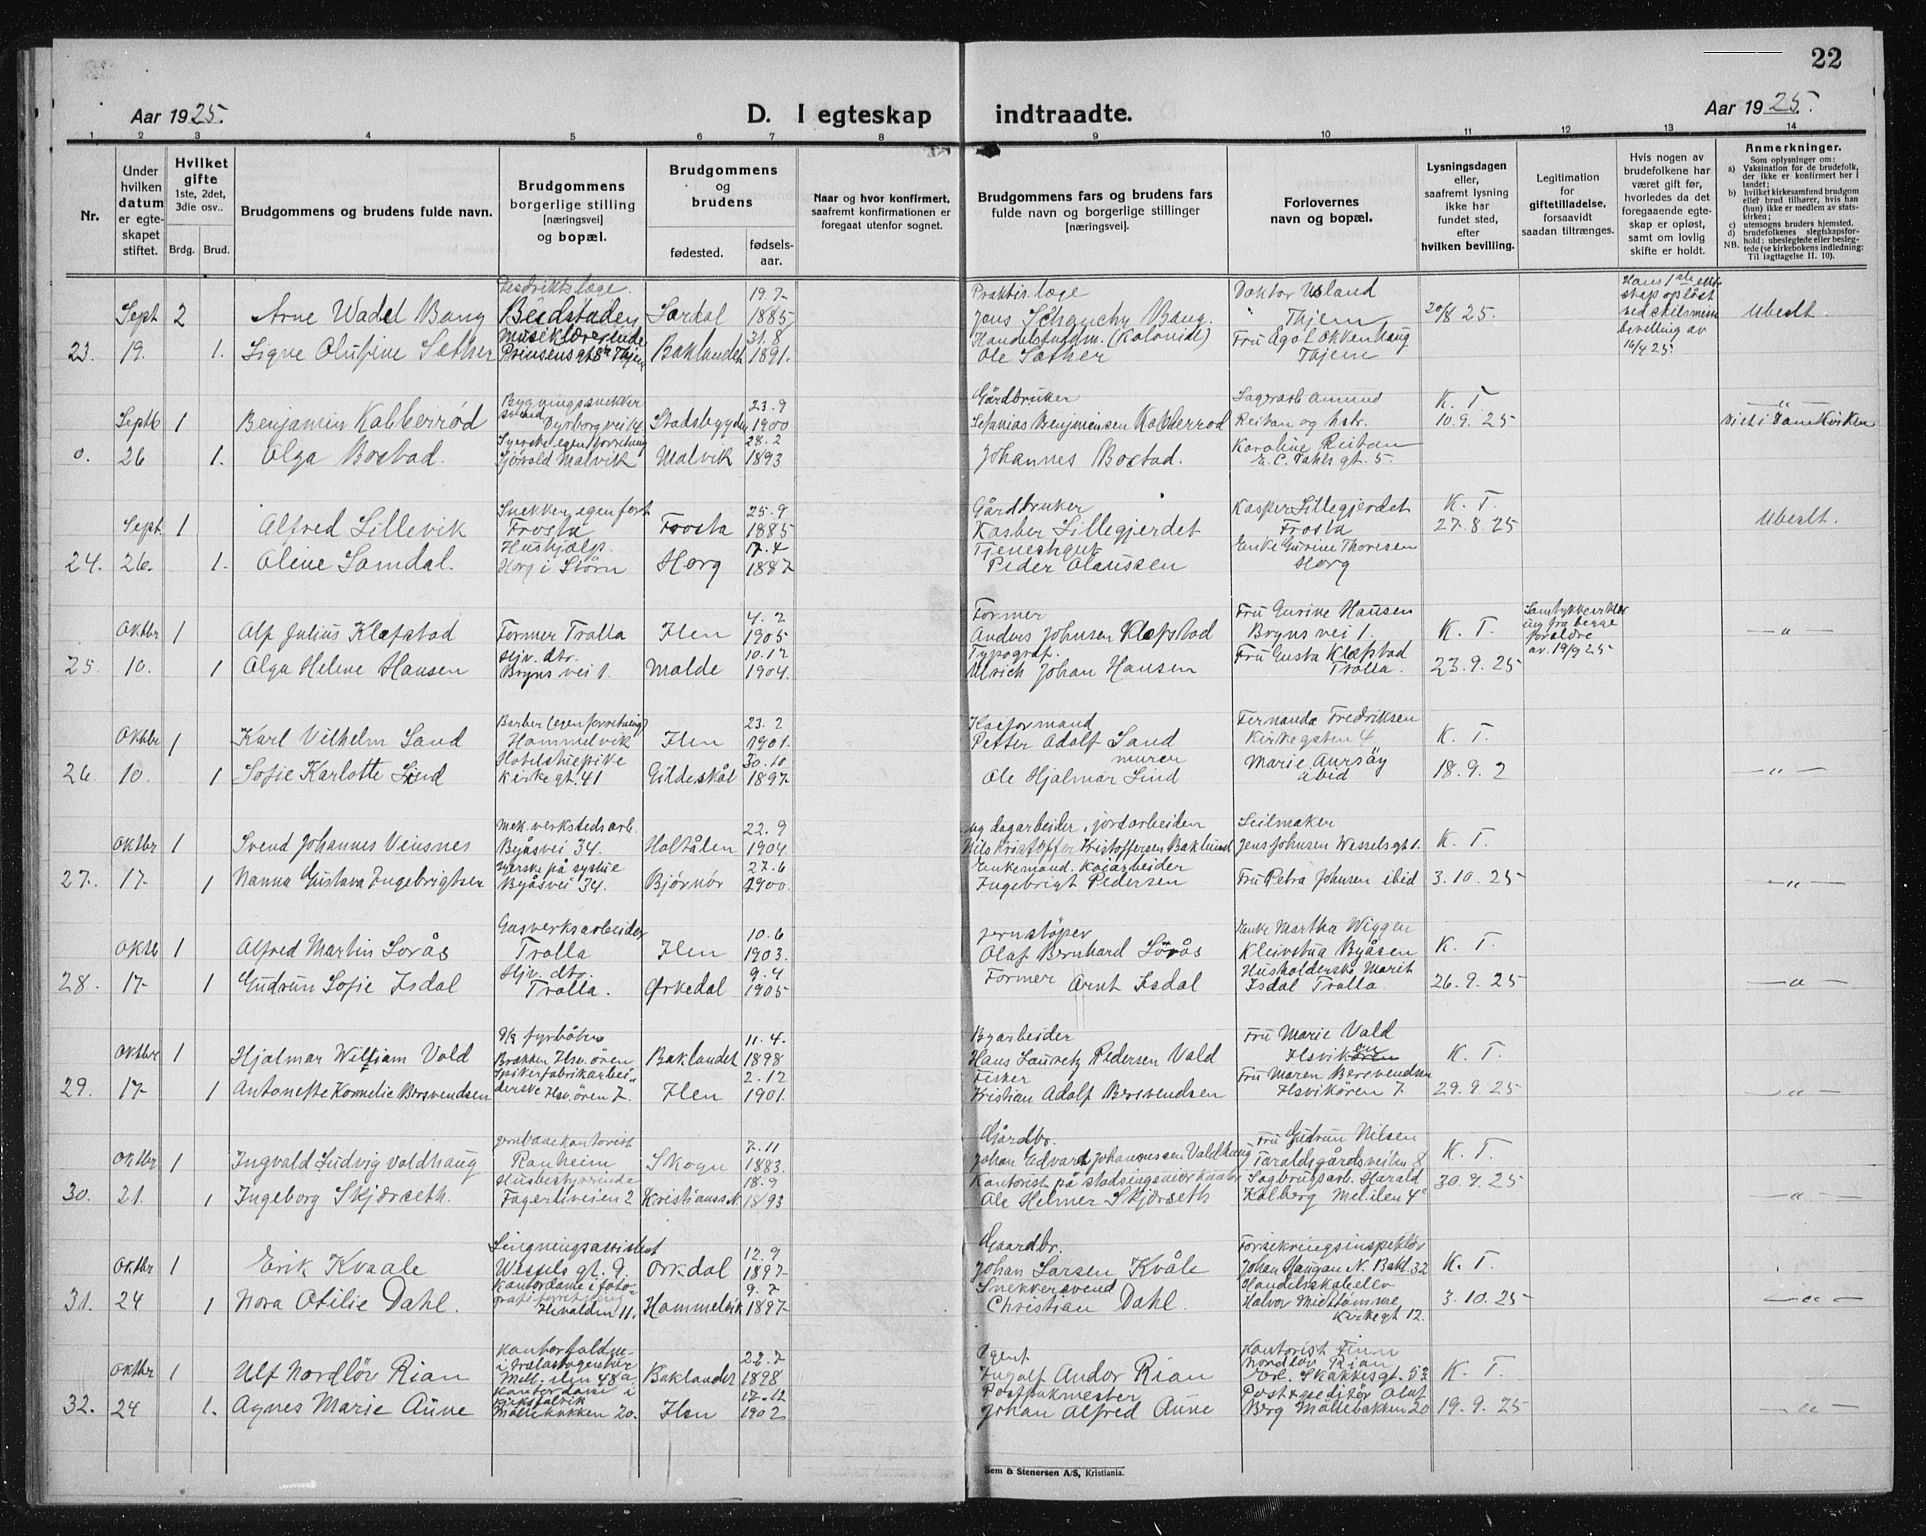 22
Aar 1925.
D. I egteskap indtraadte.
Aar 1925.
1 2 3 4 5 6 7 8 9 10 11 12 13 14
Nr.
Under hvilken datum er egteskapet stiftet.
Hvilket gifte 1ste, 2det, 3die osv..
Brdg. Brud.
Brudgommens og brudens fulde navn.
Brudgommens borgerlige stilling [næringsvei] og bopæl.
Brudgommens og brudens
fødested. fødsels-aar.
Naar og hvor konfirmert, saafremt konfirmationen er foregaat utenfor sognet.
Brudgommens fars og brudens fars fulde navn og borgerlige stillinger [næringsvei].
Forlovernes navn og bopæl.
Lysningsdagen eller, saafremt lysning ikke har fundet sted, efter hvilken bevilling.
Legitimation for giftetilladelse, forsaavidt saadan tiltrænges.
Hvis nogen av brudefolkene har været gift før, hvorledes da det foregaaende egteskap er opløst, samt om lovlig skifte er holdt.
Anmerkninger.
Som oplysninger om:
a) Vaksination for de brudefolk, der ikke er konfirmert her i landet;
b) hvilket kirkesamfund brudgom eller brud tilhører, hvis han (hun) ikke er medlem av statskirken;
c) utensogns bruders hjemsted.
d) brudefolkenes slegtskapsforhold: ubeslegtede eller beslegtede (se kirkebokens indledning:
NB. Til iagttagelse II. 10).
Distriktslæge. 19.7 Praktis. læge Doktor Usland Hans 1ste ekteskap opløst
Sept 2 Arne Wadel Bang Beidstaden Lærdal 1885 Jens Bang. " Thjem 20/8 25. ved skilsmisse Ubeslt.
Musiklærerinde 31.8 Handelsfuldm. (Kolonial) Fru Agot Okkenhaug bevilling av
23. 19. 1. Signe Olufine Sæther Prinsensgt 8 Thjem Baklandet 1891. Ole Sæther Thjem 16/4 25.
Bygningssnekker 23.9 Gårdbruker Sagarb. Amund K. T. — " —
Septb 1 Benjamin Kalberrød svend Dyrborgvei 4 Stadsbygden 1900 Benjaminsen Kalderrød Reitan og hstr. 10.9.25 Viet i Domkirken
Syerske egen forretning 28.2 Karoline Reitan
0. 26 1. Olga Bostad. Malvik Malvik 1893 Johannes Bostad. E. C. Dahls gt. 5.
Snekker egen forr 25.9 Gårdbruker Kasper Lillegjerdet K. T.
Sept 1 Alfred Lillevik Frosta Frosta 1885 Kasper Lillegjerdet Frosta 27.8.25 Ubeslt.
Hushjælp. 17.4 Tjenestgut Enke Gurine Thoresen
24. 26. 1. Oline Samdal. Horg i Størn Horg 1887 Peder Olaussen Horg
4.2 Former Fru Gurine Hansen
Oktbr 1 Alf Julius Klefstad Former Trolla Ilen 1905 Anders Johnsen Klefstad Bryns vei 1. K. T. fra begge forældre — " —
Hjv. dtr. 10.12 Typograf. Fru Gusta Klefstad av 19/9 25
25. 10. 1 Olga Helene Hansen Bryns vei 1. Molde 1904. Ulrich Johan Hansen Trolla. 23.9.25
Barber (egen forretning) 23.2 Fernanda Fredriksen
Oktbr 1 Karl Vilhelm Sand Hommelvik Ilen 1901. Petter Adolf Sand Kirkegaten 4 K. T.
30.10 murer Marie Aursøy
26 10. 1 Sofie Karlotte Lind Kirkegt. 41 Gildeskål 1897 Ole Hjalmar Lind ibid 18.9.2 — " —
Mek. verkstedsarb. 22.9 og dagarbeider, jordarbeiden Seilmaker
Oktbr 1 Svend Johannes Vinsnes Byåsvei 34. Holtålen 1904. Nils Kristoffer Kristoffersen Baklund Jens Johnsen Wesselsgt 1. K. T.
syerske på systue 27.6 Enkemand. Kaiarbeider
27. 17. 1 Nanna Gustava Ingebrigtsen Byåsvei 34. Bjørnør 1900. Ingebrigt Pedersen Fru Petra Johnsen ibid 3.10.25 — " —
Gasverksarbeider 10.6 jernstøper Enke Martha Wiggen
Oktb 1 Alfred Martin Sorås Trolla Ilen 1903. Olaf Bernhard Sørås Kleivstua Byåsen K. T.
Hjv. dtr. 9.4 Former Husholderske Marit
28. 17- 1 Gudrun Sofie Isdal Trolla. Ørkedal 1905 Arnt Isdal Isdal Trolla 26.9.25 — " —
fyrbøter 11.4. Byarbeider Fru Marie Vold
Oktbr 1 Hjalmar William Vold Brækken Ilsv. ören Baklandet 1898 Hans Lauretz Pedersen Vold Ilsvikören K. T.
Spikerfabrikarbei- 2.12 Fisker Fru Maren Bersvendsen
29. 17- 1 Antonette Kornelie Bersvendsen derske Ilsv. ören 7. Ilen 1901. Kristian Adolf Bersvendsen Ilsvikören 7 29.9.25 — " —
jernbanekontorist 7.11 Gårdbr. Fru Gudrun Nilsen
Oktbr 1 Ingvald Ludvig Voldhaug Ranheim Skogn 1883. Johan Edvard Johannessen Valdhaug Taraldsgårdsveiten 8 K. T.
Husbestyrerinde 18.9 Kontorist på stadsingeniörkontor Sagbrugsarb. Harald
30. 21. 1 Ingeborg Skjærseth. Fagerliveien 2 Kristianss N. 1893 Ole Helmer Skjærseth Kolberg Mellilen 4c 30.9.25 — " —
Ligningsassistent 12.9 Gaardbr. Forsikringsinspektör
Oktbr 1 Erik Kvaale Wessels gt. 9. Orkdal 1897 Johan Larsen Kvåle Johan Haugan N. Bakl. 32 K. T.
Kontordame i foto- 9.7 Snekkersvend Handelsskoleelev
31. 24 1 Nora Otilie Dahl. grafiforretning Ilevolden 11. Hommelvik 1897 Christian Dahl. Halvor Midttömme Kirkegt 12. 3.10.25 — " —
Kontorfuldm. 22.7 Agent Kontorist Finn
Oktbr 1 Ulf Nordlöv Rian Mell. ilen 48a Baklandet 1898 Ingolf Andor Rian Nordlöv Rian Erl. Skakkesgt. 52 K. T.
Kontordame i 17.12 Postpakmester Postexpeditör Olaf
32. 24 1. Agnes Marie Aune Möllebakken 20. Ilen 1902 Johan Alfred Aune Berg Möllebakken 20 19.9.25 — " —
Sem & Stenersen A/S, Kristiania.